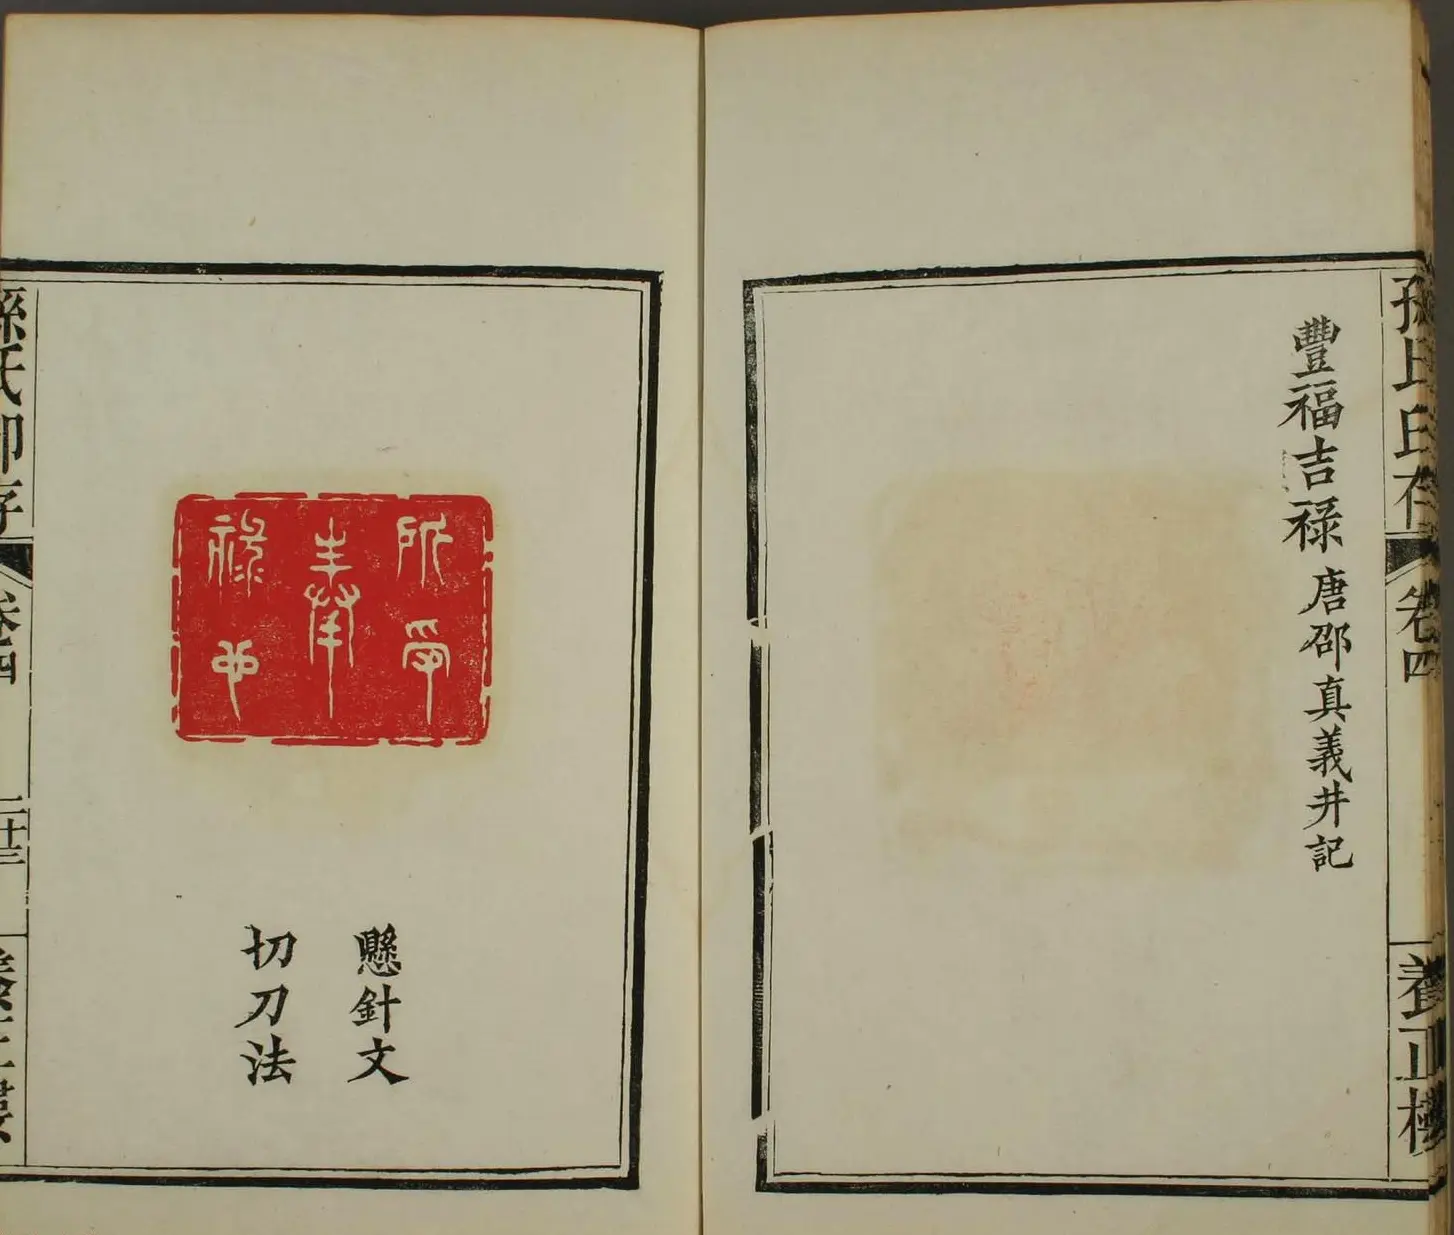 孫氏印存
卷四
養正樓
豐福吉祿 唐邵真義井記
懸針文
切刀法
孫氏印存
卷四
二十三
養正樓